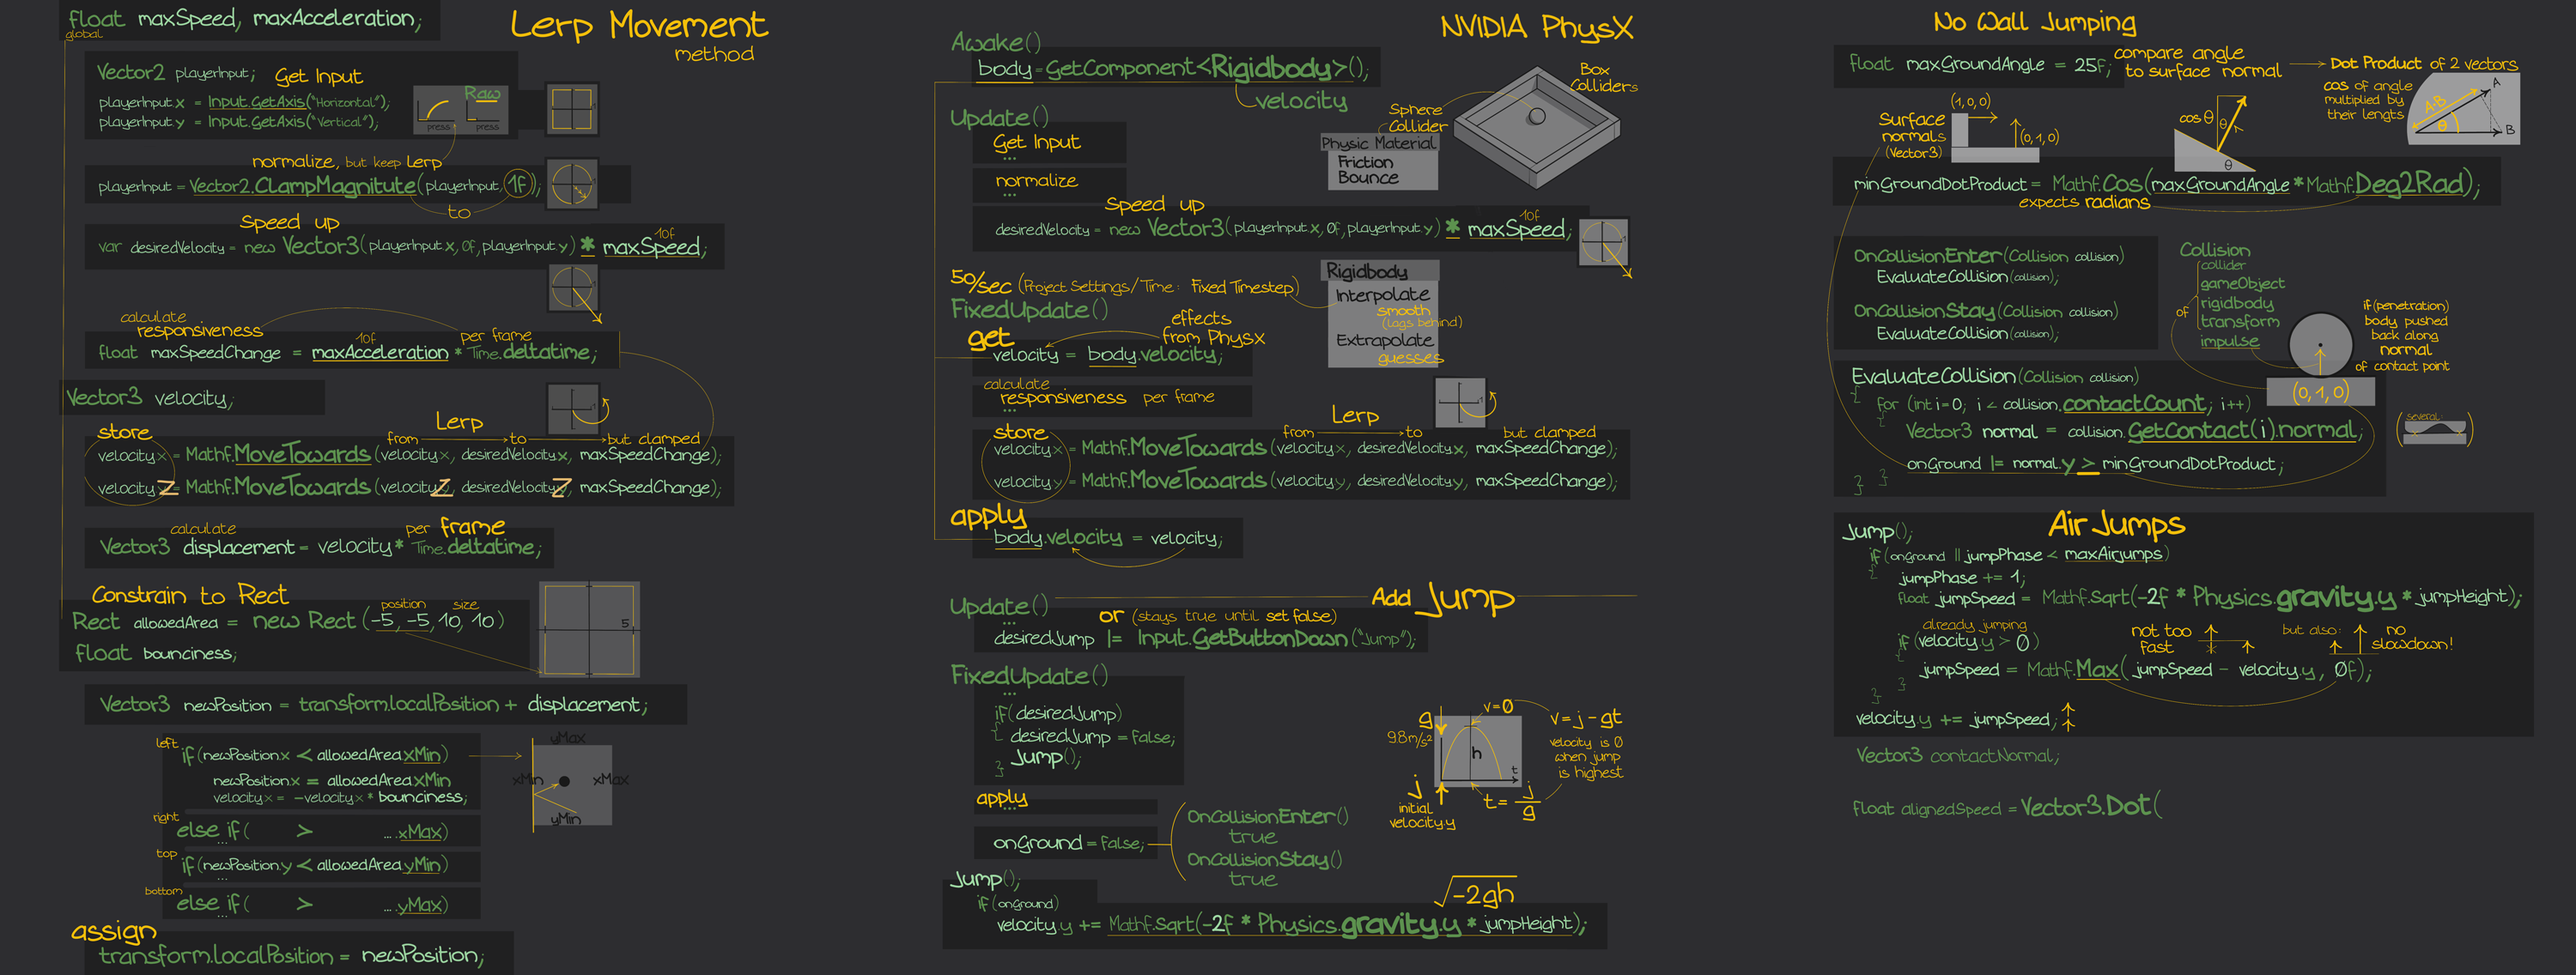 Lerp Movement
method
float maxSpeed, maxAcceleration;
global
Vector2 playerInput;
Get Input
playerInput.x = Input.GetAxis("Horizontal");
playerInput.y = Input.GetAxis("Vertical");
Raw
press
press
1
normalize, but keep Lerp
playerInput = Vector2.ClampMagnitute(playerInput, 1f);
to
Speed up
10f
var desiredVelocity = new Vector3(playerInput.x, 0f, playerInput.y) * maxSpeed;
calculate
responsiveness
per frame
10f
float maxSpeedChange = maxAcceleration * Time.deltatime;
Vector3 velocity;
Lerp
store
from
to
but clamped
velocity.x = Mathf.MoveTowards(velocity.x, desiredVelocity.x, maxSpeedChange);
velocity.z = Mathf.MoveTowards(velocity.z, desiredVelocity.z, maxSpeedChange);
calculate
per frame
Vector3 displacement = velocity * Time.deltatime;
Constrain to Rect
position
size
Rect allowedArea = new Rect (-5, -5, 10, 10)
5
float bounciness;
Vector3 newPosition = transform.localPosition + displacement;
left
if(newPosition.x < allowedArea.xMin)
newPosition.x = allowedArea.xMin
velocity.x = -velocity.x * bounciness;
right
else if( > ....xMax)
...
top
if(newPosition.y < allowedArea.yMin)
...
bottom
else if( > ....yMax)
...
yMax
xMin
xMax
yMin
assign
transform.localPosition = newPosition;
NVIDIA PhysX
Awake()
body = GetComponent<Rigidbody>();
velocity
Box
Colliders
Sphere
Collider
Physic Material
Friction
Bounce
Update()
Get Input
...
normalize
...
Speed up
10f
desiredVelocity = new Vector3(playerInput.x, 0f, playerInput.y) * maxSpeed;
50/sec (Project Settings/Time: Fixed Timestep)
FixedUpdate()
Rigidbody
Interpolate
smooth
(lags behind)
Extrapolate
guesses
get
effects
from PhysX
velocity = body.velocity;
calculate
responsiveness per frame
...
Lerp
store
from
to
but clamped
velocity.x = Mathf.MoveTowards(velocity.x, desiredVelocity.x, maxSpeedChange);
velocity.y = Mathf.MoveTowards(velocity.y, desiredVelocity.y, maxSpeedChange);
apply
body.velocity = velocity;
Add Jump
Update()
or (stays true until set false)
desiredJump |= Input.GetButtonDown("Jump");
FixedUpdate()
...
if(desiredJump)
{ desiredJump = false;
Jump();
}
apply
...
onGround = false;
OnCollisionEnter()
true
OnCollisionStay()
true
g
9.8m/s²
v=0
v = j - gt
velocity is 0
when jump
is highest
h
t
j
initial
velocity.y
t = j/g
Jump();
if(onGround)
√-2gh
velocity.y += Mathf.Sqrt(-2f * Physics.gravity.y * jumpHeight);
No Wall Jumping
float maxGroundAngle = 25f;
compare angle
to surface normal
Dot Product of 2 vectors
cos of angle
multiplied by
their lengts
A
A·B
θ
B
Surface
normals
(Vector3)
(1, 0, 0)
(0, 1, 0)
cosθ
θ
1
θ
minGroundDotProduct = Mathf.Cos(maxGroundAngle * Mathf.Deg2Rad);
expects radians
OnCollisionEnter(Collision collision)
EvaluateCollision(collision);
OnCollisionStay(Collision collision)
EvaluateCollision(collision);
Collision
collider
gameObject
rigidbody
transform
impulse
of
if(penetration)
body pushed
back along
normal
of contact point
(0, 1, 0)
EvaluateCollision(Collision collision)
{
for (int i=0; i < collision.contactCount; i++)
{
Vector3 normal = collision.GetContact(i).normal;
onGround |= normal.y > minGroundDotProduct;
} }
(several:)
Air Jumps
Jump();
if(onGround || jumpPhase < maxAirjumps)
{
jumpPhase += 1;
float jumpSpeed = Mathf.Sqrt(-2f * Physics.gravity.y * jumpHeight);
already jumping
if(velocity.y > 0)
{
not too
fast
but also:
no
slowdown!
jumpSpeed = Mathf.Max(jumpSpeed - velocity.y, 0f);
} }
velocity.y += jumpSpeed;
Vector3 contactNormal;
float alignedSpeed = Vector3.Dot(